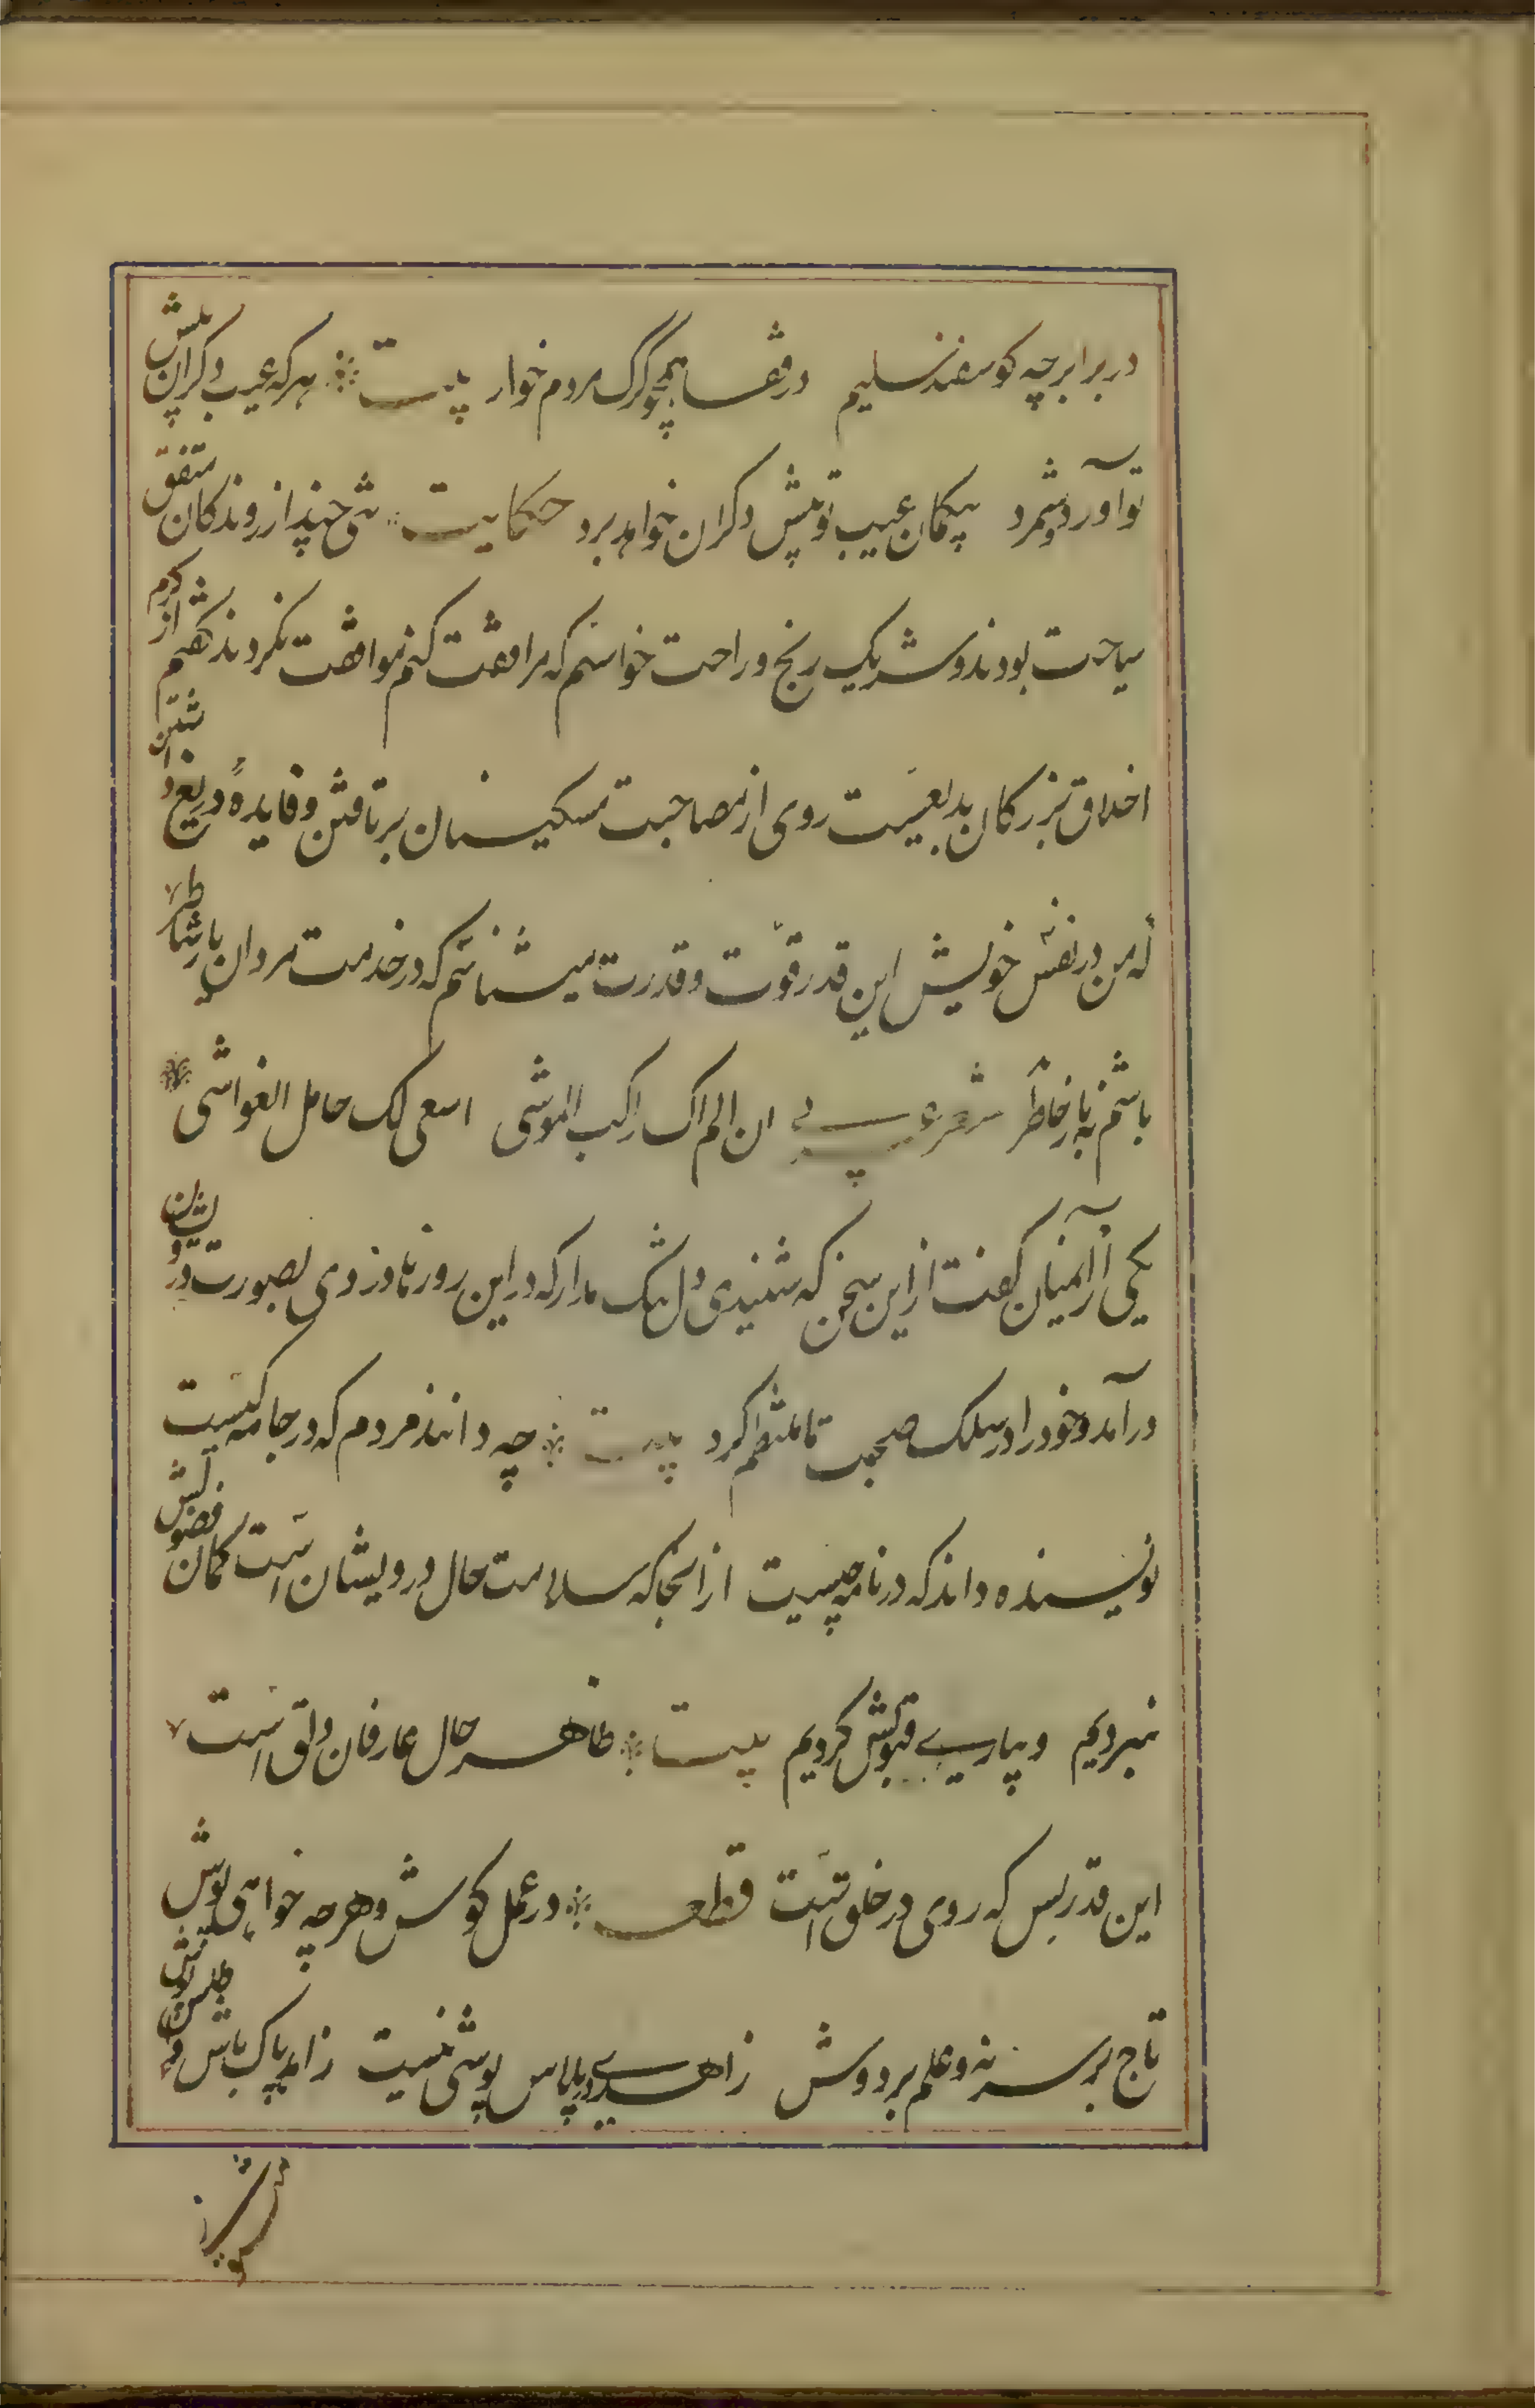 در برابر چه کوسفند سلیم در قفا همچو کرک مردم خوار بیت هر که عیب دکران پیش
تو آورد و شمرد بیکمان عیب تو پیش دکران خواهد برد حکایت تنی چند از روندکان متفق
سیاحت بودند و شریک رنج و راحت خواستم که مرافقت کنم موافقت نکردند کفتم از کرم
اخلاق بزرکان بدیعست روی از مصاحبت مسکینان بر تافتن و فایده دریغ داشتن
که من در نفس خویش این قدر قوت و قدرت میشناسم که در خدمت مردان یار شاطر
باشم نه بار خاطر شعر عربی ان لم اک راکب المواشی اسعی لک حامل الغواشی
یکی از آنمیان کفت از این سخن که شنیدی دل تنک مدار که در این روزها دزدی بصورت درویشان
در آمد و خود را در سلک صحبت ما منتظم کرد بیت چه دانند مردم که در جامه کیست
نویسنده داند که در نامه چیست از انجا که سلامت حال درویشان است کمان فضولش
نبردیم و بیاری قبولش کردیم بیت ظاهر حال عارفان دلق است
این قدر بس که روی در خلق است قطعه در عمل کوش و هر چه خواهی پوش
تاج بر سر نه و علم بر دوش زاهدی در پلاس پوشی نیست زاهد پاک باش و اطلس پوش